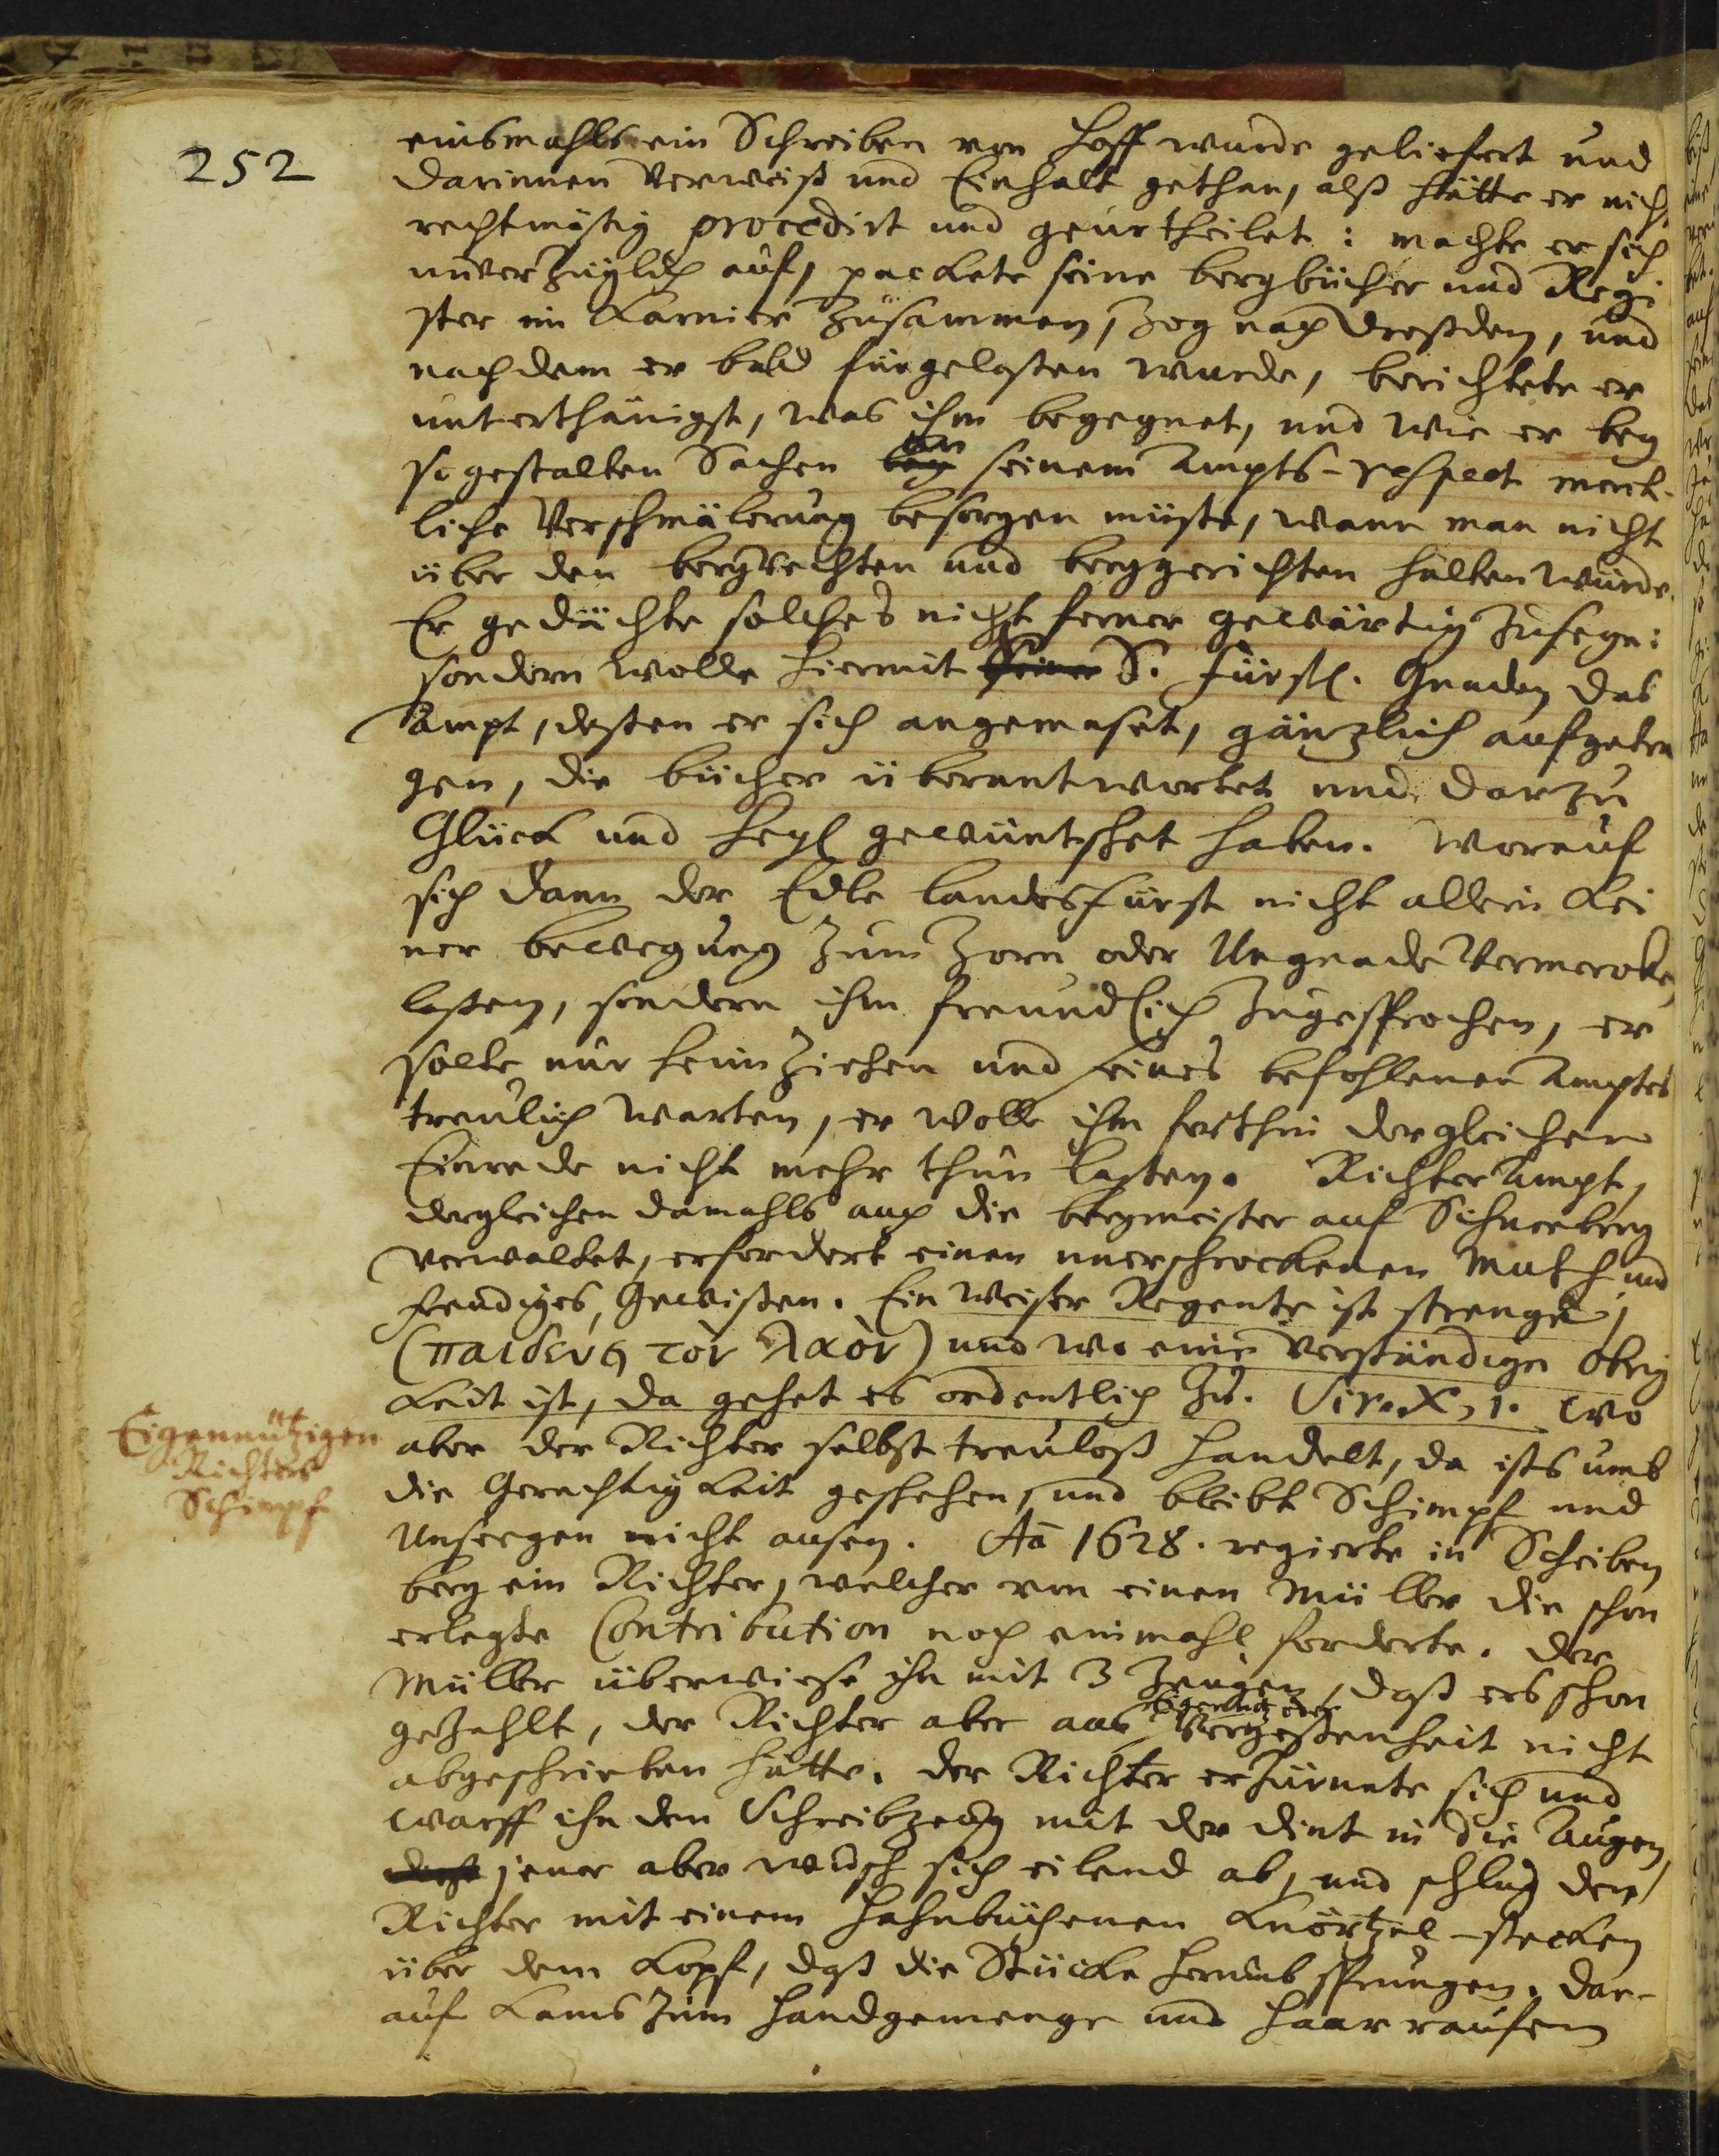 252
einsmahls ein Schreiben von Hoff wurde geliefert und
darinnen Verweiß und Einhalt gethan, alß hätte er nicht
rechtmäßig procedirt und geurtheilet: machte er sich
unverzüglich auf, packete seine bergbücher und Regi
ster im Karnier zusammen, zog nach Dreßden, und
nachdem er bald fürgelaßen wurde, berichtete er
unterthänigst, was ihm begegnet, und wie er bey
so gestalten Sachen an seinem Ampts-respect merck-
liche Verschmälerung besorgen müste, wann man nicht
über den bergrechten und berggerichten halten würde.
Er gedächte solches nicht ferner gewärtig zuseyn:
sondern wolle hiermit S. Fürstl. Gnaden das
Ampt, deßen er sich angemaset, gäntzlich aufgetra
gen, die bücher überantwortet und darzu
Glück und Heyl gewüntschet haben. Worauf
sich dann der Edle Landesfürst nicht allein kei
ner bewegung zum Zorn oder Ungnade Vermercke
laßen, sondern ihm freundlich zugesprochen, er
solle nur heim ziehen und seines befohlenen Amptes
treulich warten, er wolle ihm forthin dergleichen
Einrede nicht mehr thun laßen. Richter Ampt,
dergleichen damahls auch die bergmeister auf Schneeberg
verwaltet, erfordert einen unerschrockenen Muth und
freudiges Gewißen. Ein weiser Regente ist strenge,
(παιδευς τὸν λαὸν) und wo eine Verständige Obrig
keit ist, da gehet es ordentlich zu. Sir. X, 1. Wo
Eigennützigen
Richters
Schimpf
aber der Richter selbst treuloß handelt, da ists umb
die Gerechtigkeit geschehen, und bleibt Schimpf und
Unseegen nicht ausen. Ao 1628. regierte in Scheiben
berg ein Richter, welcher von einen Müller die schon
erlegte Contribution noch einmahl forderte. Der
Müller überwiese ihn mit 3 Zeugen, daß ers schon
gezahlt, der Richter aber aus Eigennutz oder Vergeßenheit nicht
abgeschrieben hätte. Der Richter erzürnete sich und
warff ihn den Schreibzeug mit der Dint in die Augen,
jener aber wusch sich eilend ab, und schlug den
Richter mit einem Hahnbüchenen Knörtzel-stecken
über dem Kopf, daß die Stücke herumb sprungen. Dar-
auf kams zum Handgemenge und Haar raufen